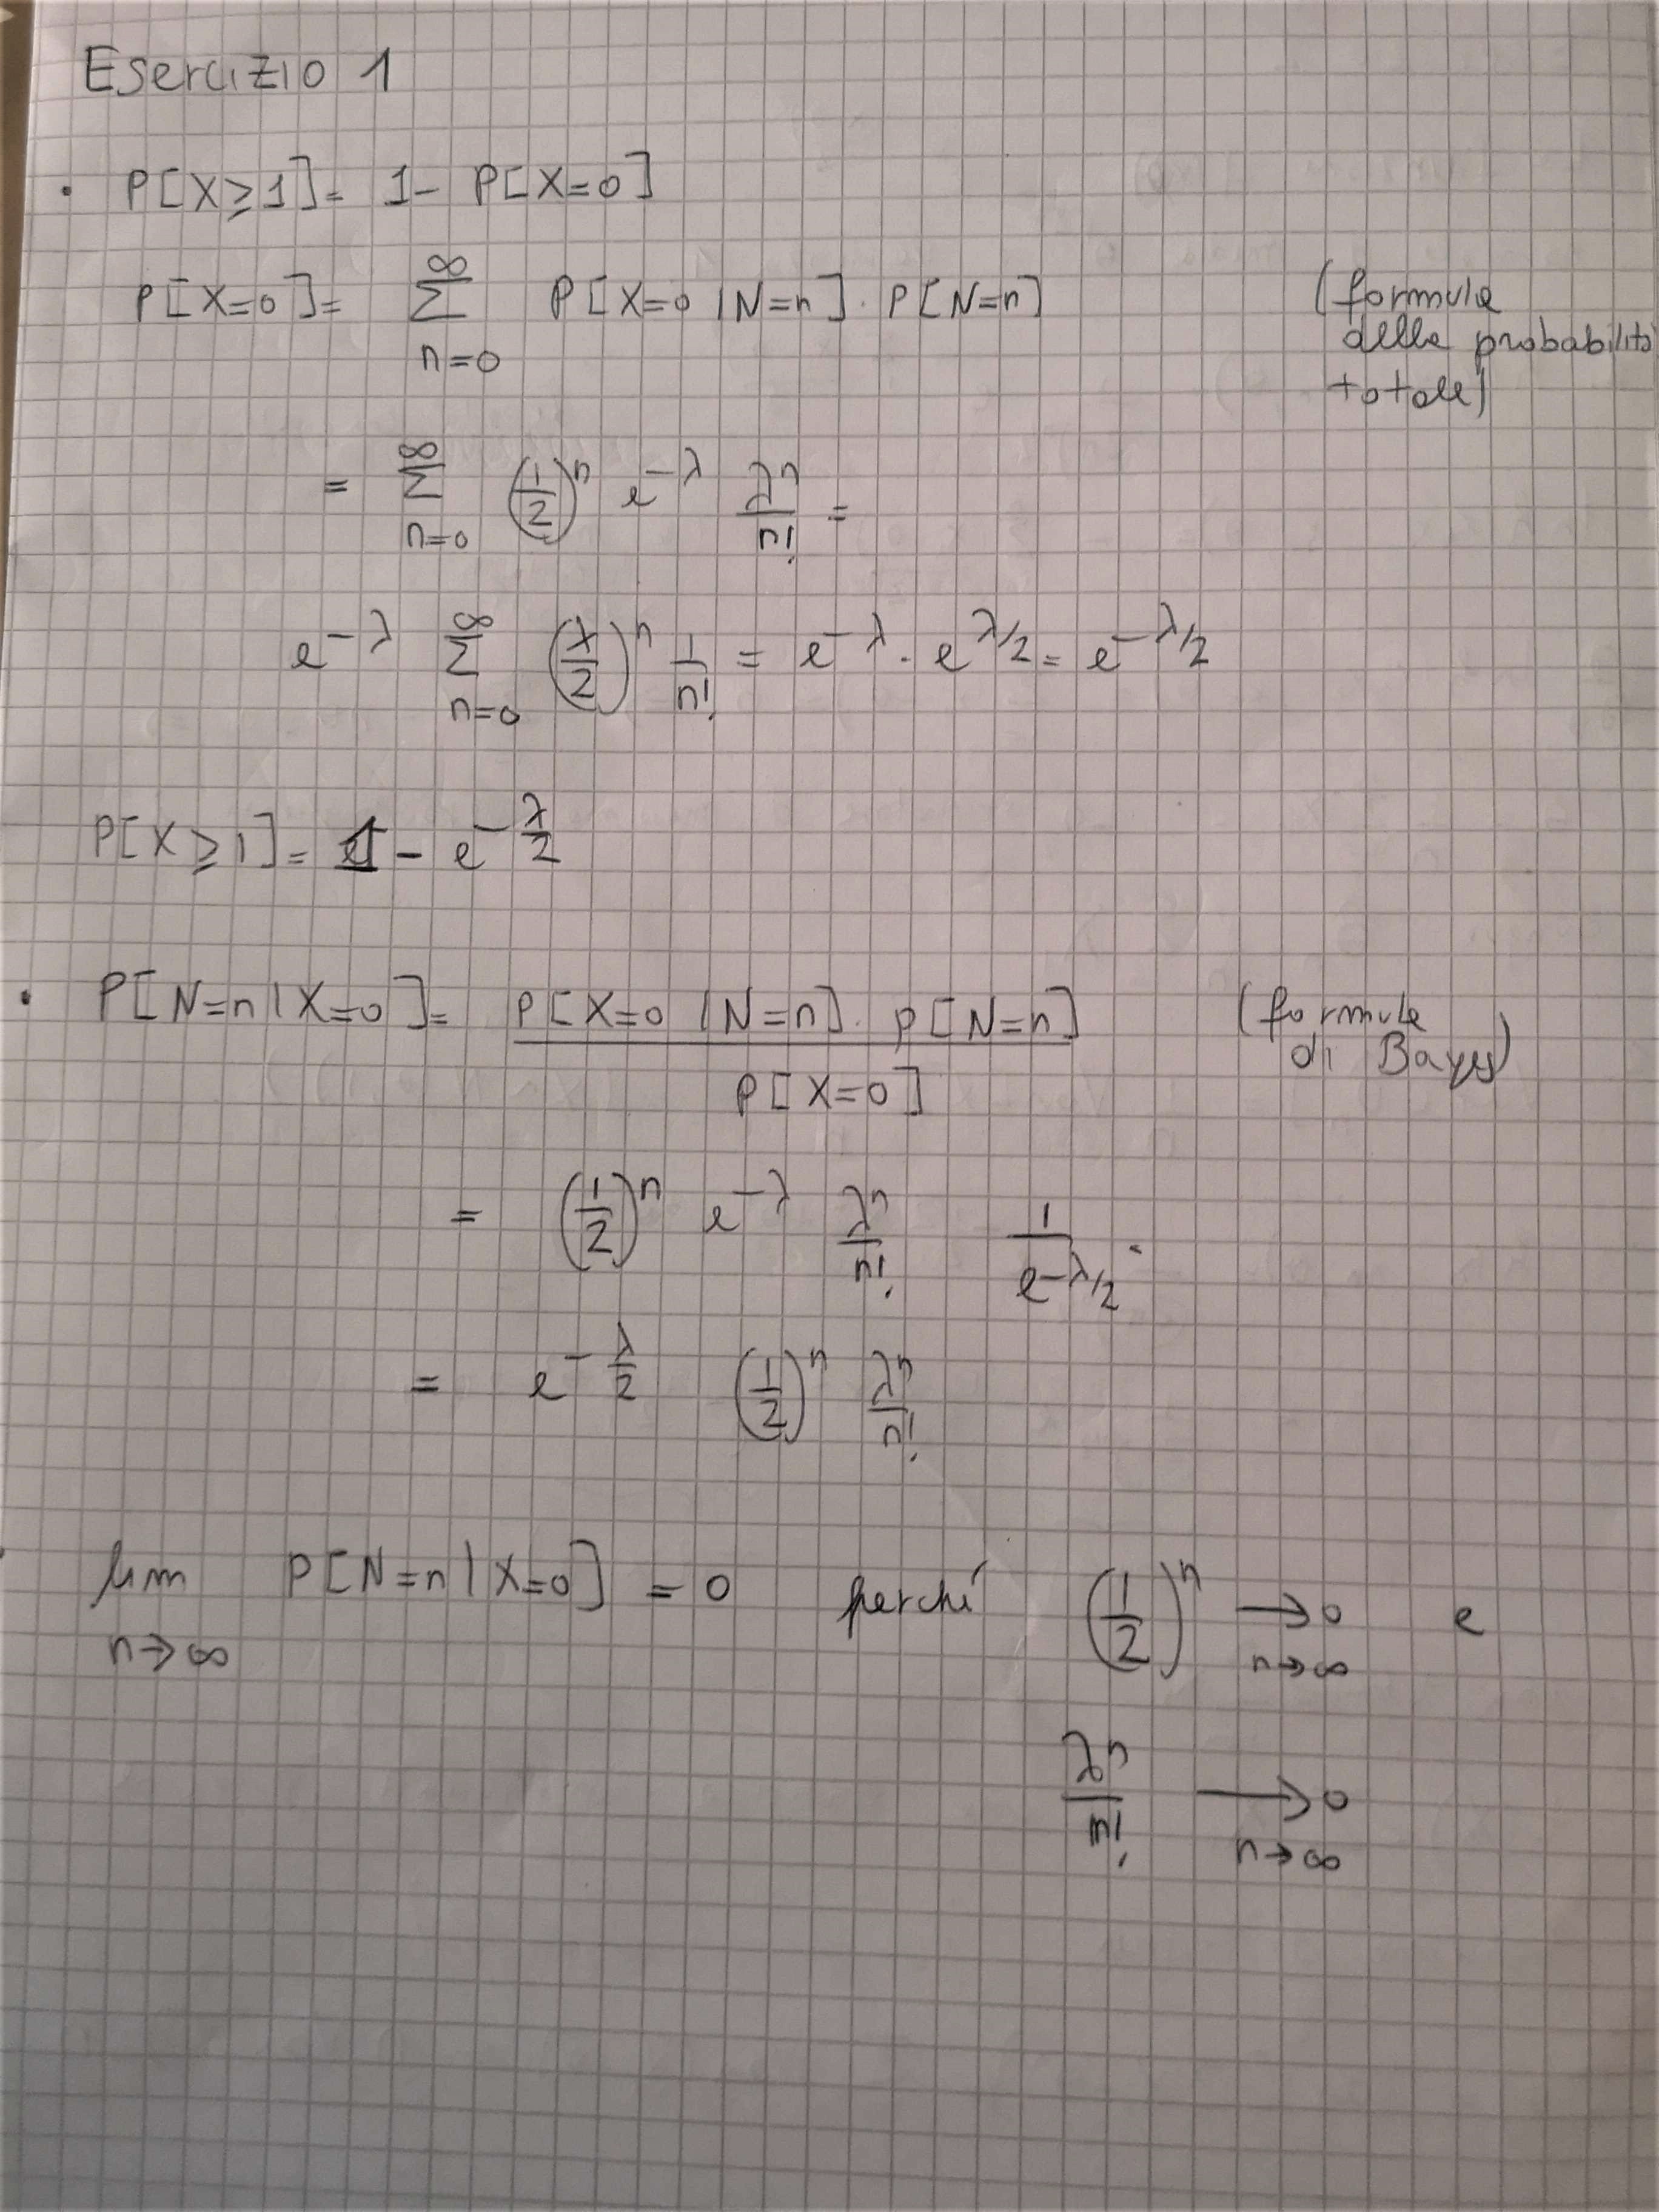 Esercizio 1
• P[X≥1]= 1- P[X=0]
P[X=0]= ∑_{n=0}^{∞} P[X=0 |N=n]· P[N=n] (formula della probabilità totale)
= ∑_{n=0}^{∞} (1/2)^n e^{-λ} λ^n/n! =
e^{-λ} ∑_{n=0}^{∞} (λ/2)^n 1/n! = e^{-λ}· e^{λ/2} = e^{-λ/2}
P[X≥1]= 1- e^{-λ/2}
• P[N=n|X=0]= P[X=0 |N=n]· P[N=n] / P[X=0] (formula di Bayes)
= (1/2)^n e^{-λ} λ^n/n! 1/e^{-λ/2} .
= e^{-λ/2} (1/2)^n λ^n/n!
• lim_{n→∞} P[N=n|X=0] = 0 perché (1/2)^n →_{n→∞} 0 e
λ^n/n! →_{n→∞} 0